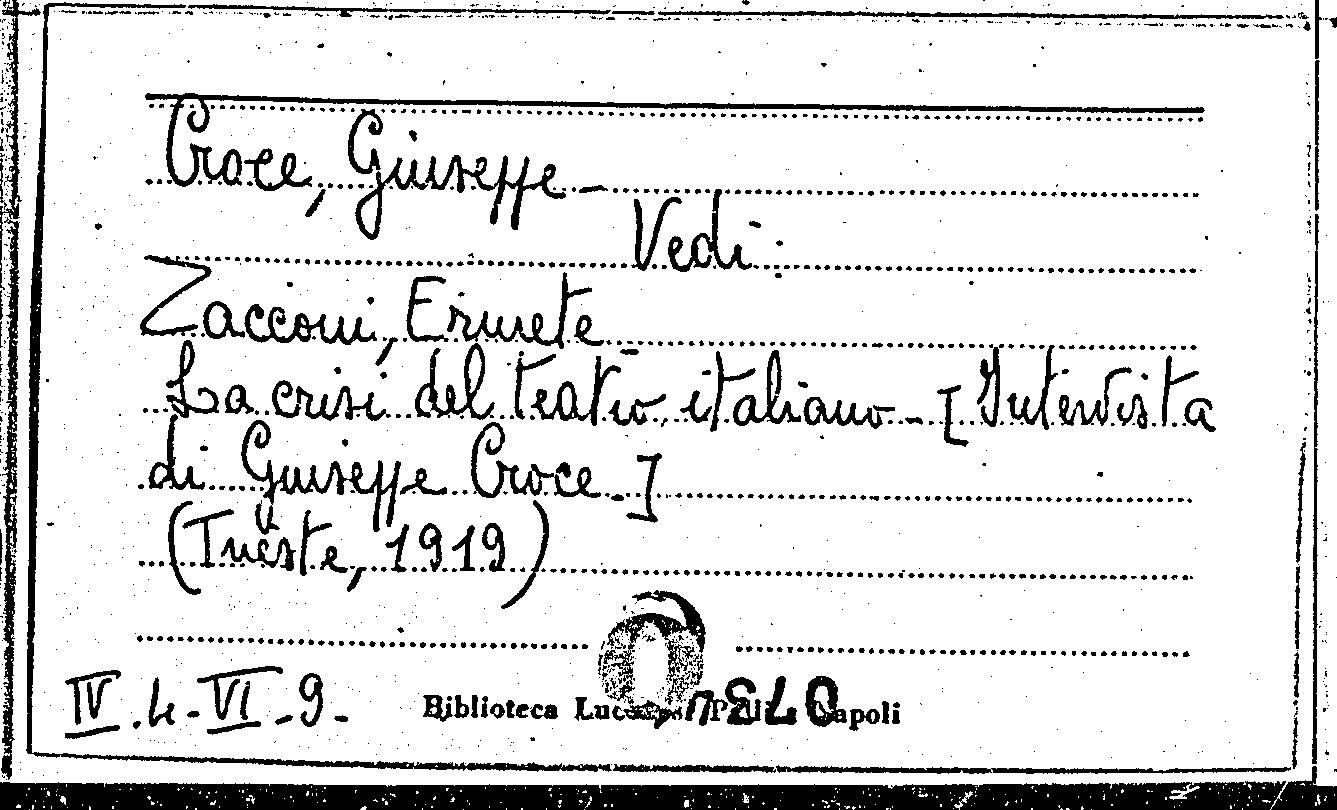 Croce, Giuseppe -
Vedi:
Zacconi, Ermete -
La crisi del teatro italiano - [Intervista
di Giuseppe Croce.]
(Trieste, 1919)
IV.4.-VI.-9.-
Biblioteca Napoli